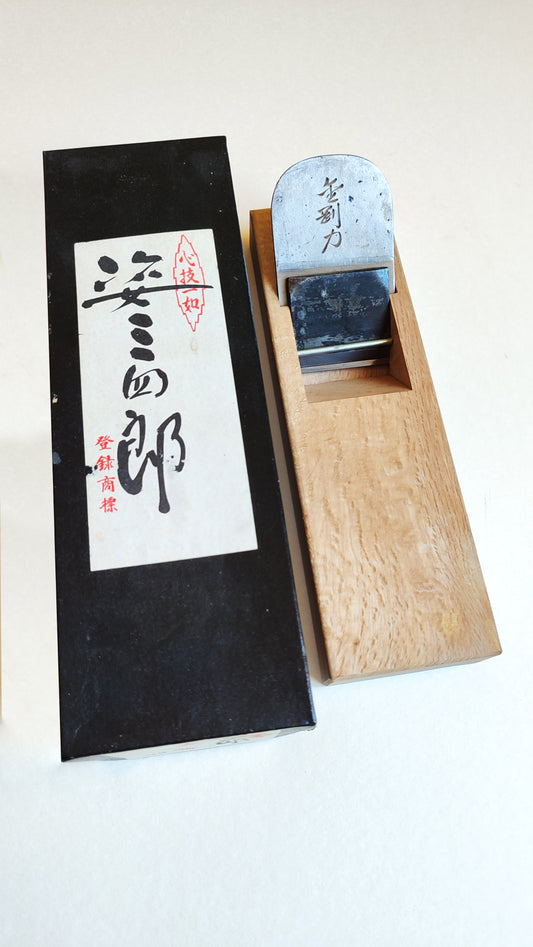 姿三四郎
心技一如
登録商標
金剛力